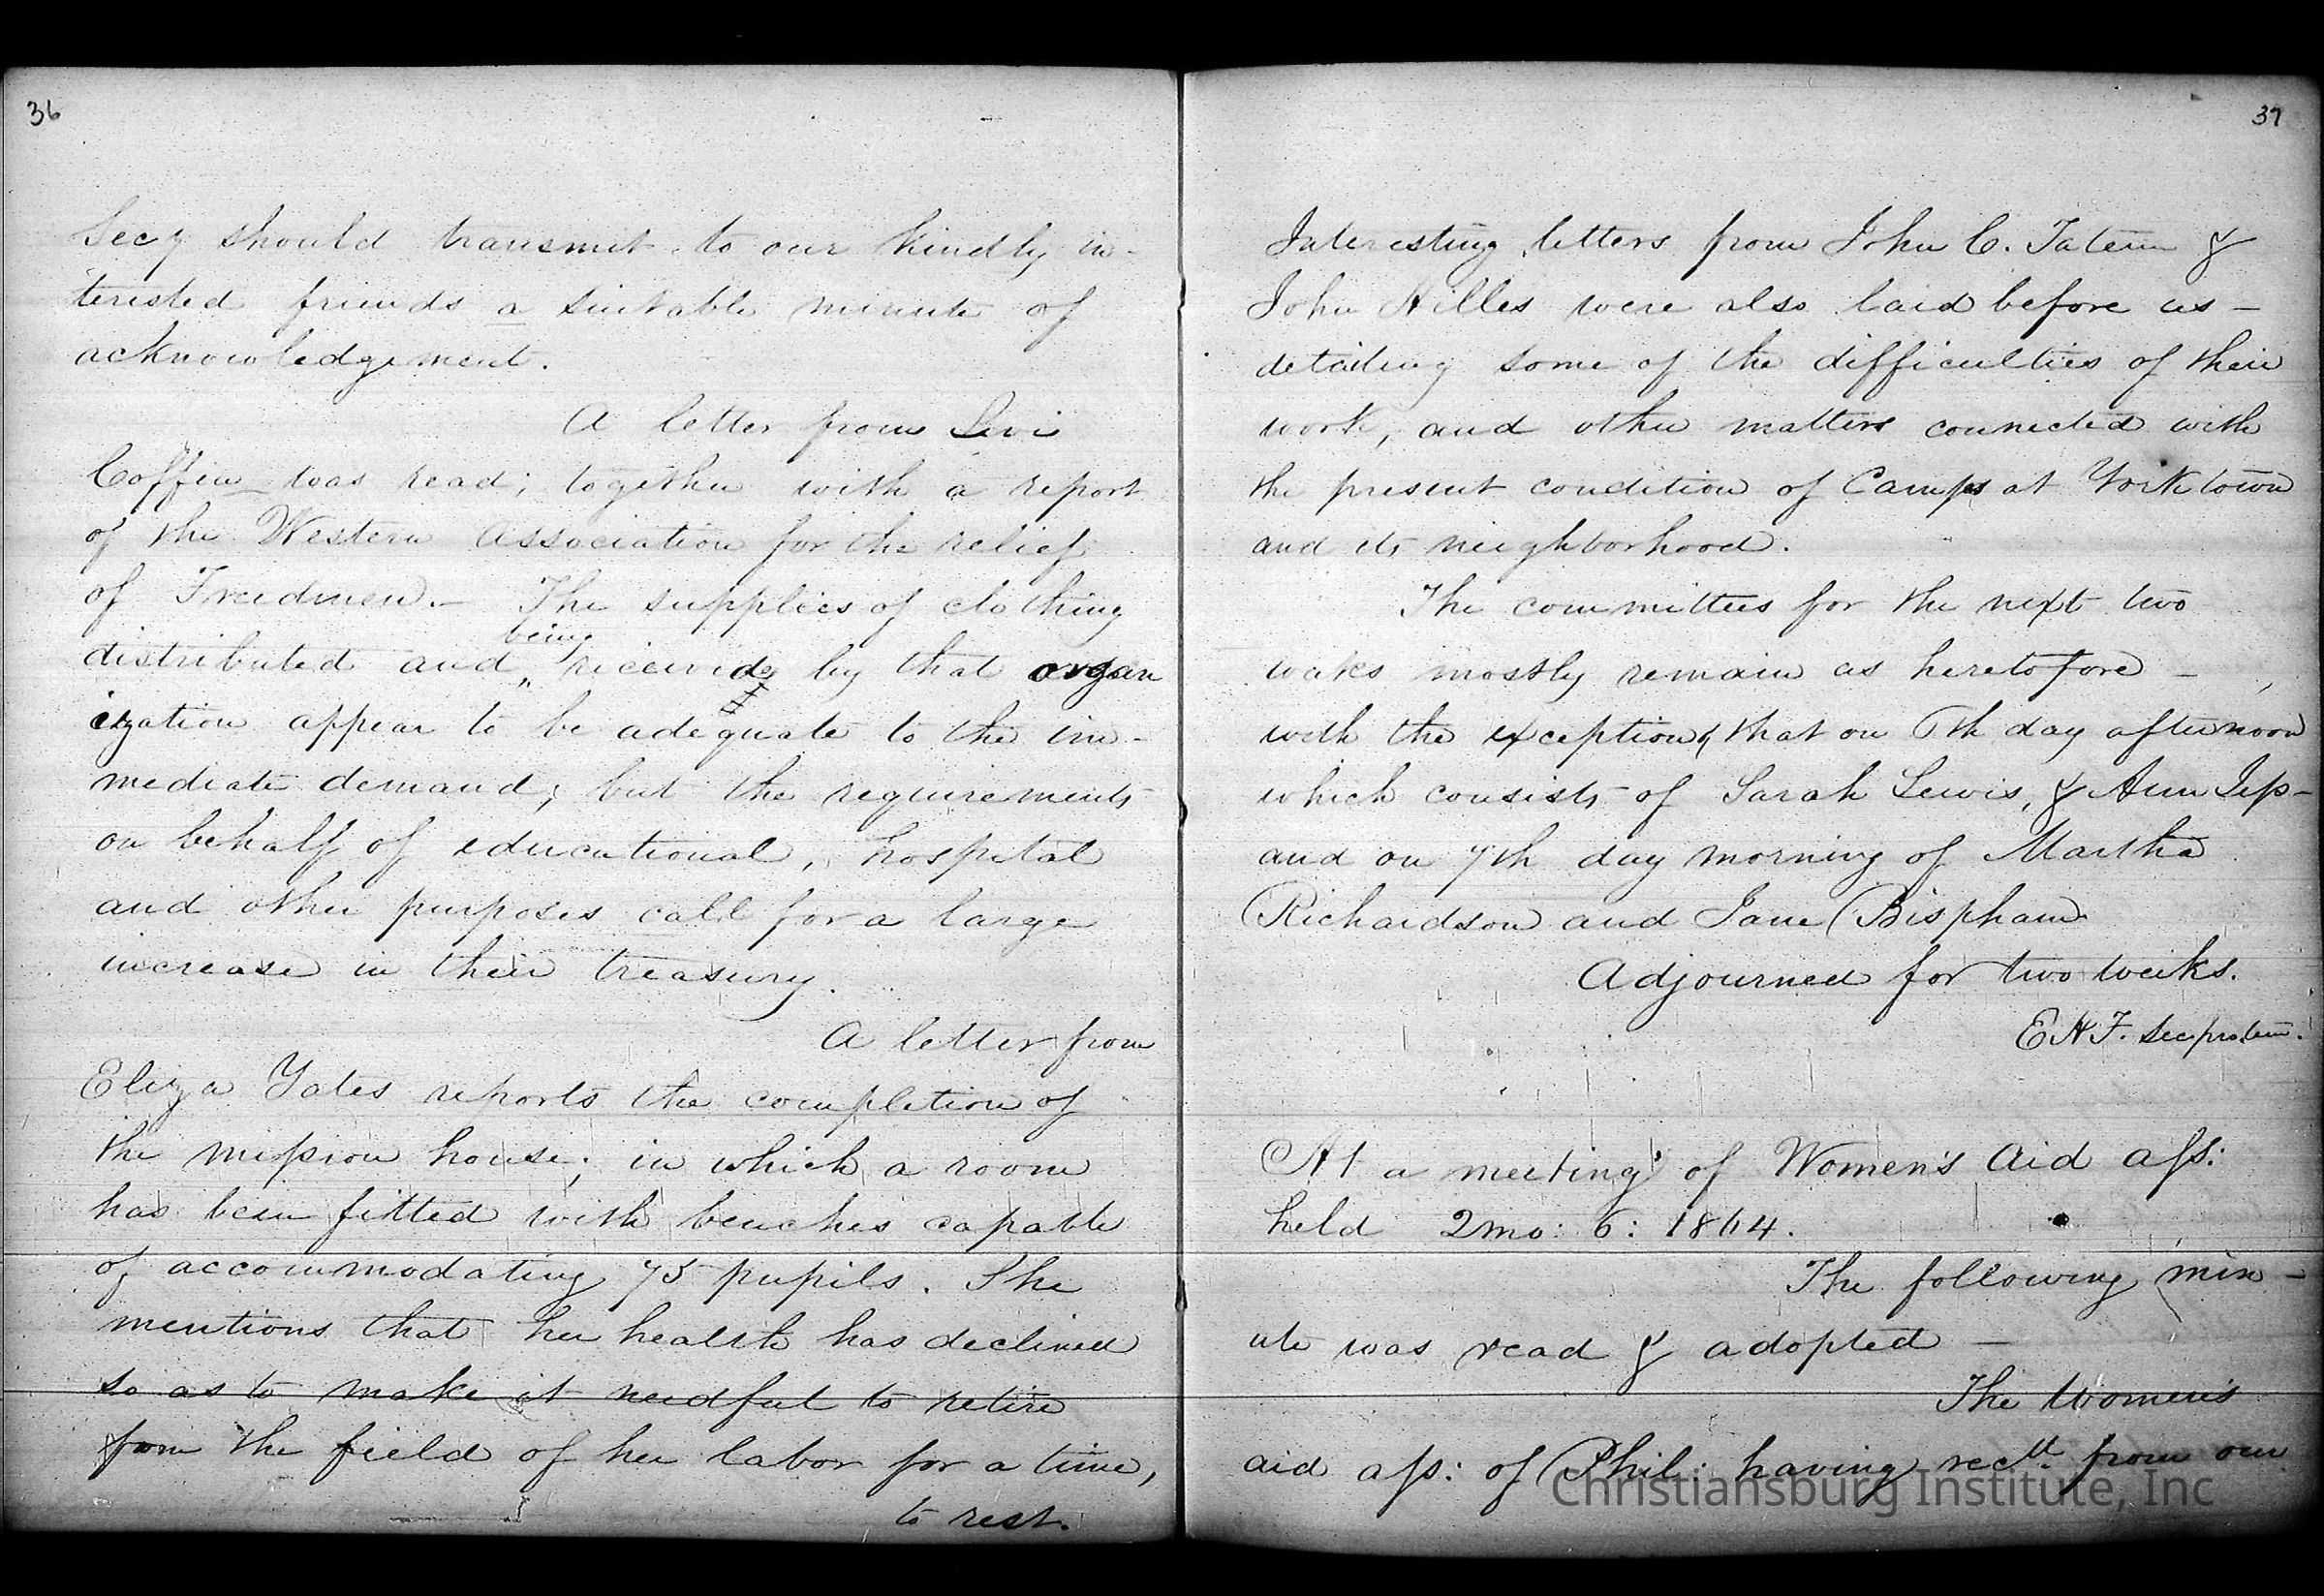 36
Secy should transmit to our kindly in-
terested friends a suitable minute of
acknowledgement.
A letter from Levi
Coffin was read; together with a report
of the Western Association for the relief
of Freedmen. – The supplies of clothing
being
distributed and „ received by that organ
ization appear to be adequate to the im-
mediate demand; but the requirements
on behalf of educational, hospital
and other purposes call for a large
increase in their treasury.
A letter from
Eliza Yates reports the completion of
the mission house; in which a room
has been fitted with benches capable
of accommodating 75 pupils. She
mentions that her health has declined
so as to make it needful to retire
from the field of her labor for a time,
to rest.
37
Interesting letters from John C. Tatem &
John Hilles were also laid before us –
detailing some of the difficulties of their
work, and other matters connected with
the present condition of Camps at Yorktown
and its neighborhood.
The committees for the next two
weeks mostly remain as heretofore –
with the exception, that on 6th day afternoon
which consists of Sarah Lewis, & Ann Jep-
and on 7th day morning of Martha
Richardson and Jane Bispham
Adjourned for two weeks.
E H F. Sec pro. tem.
At a meeting of Women's Aid Ass:
held 2mo: 6: 1864.
The following min-
ute was read & adopted –
The Women's
aid ass: of Phil: having recd. from our
Christiansburg Institute, Inc